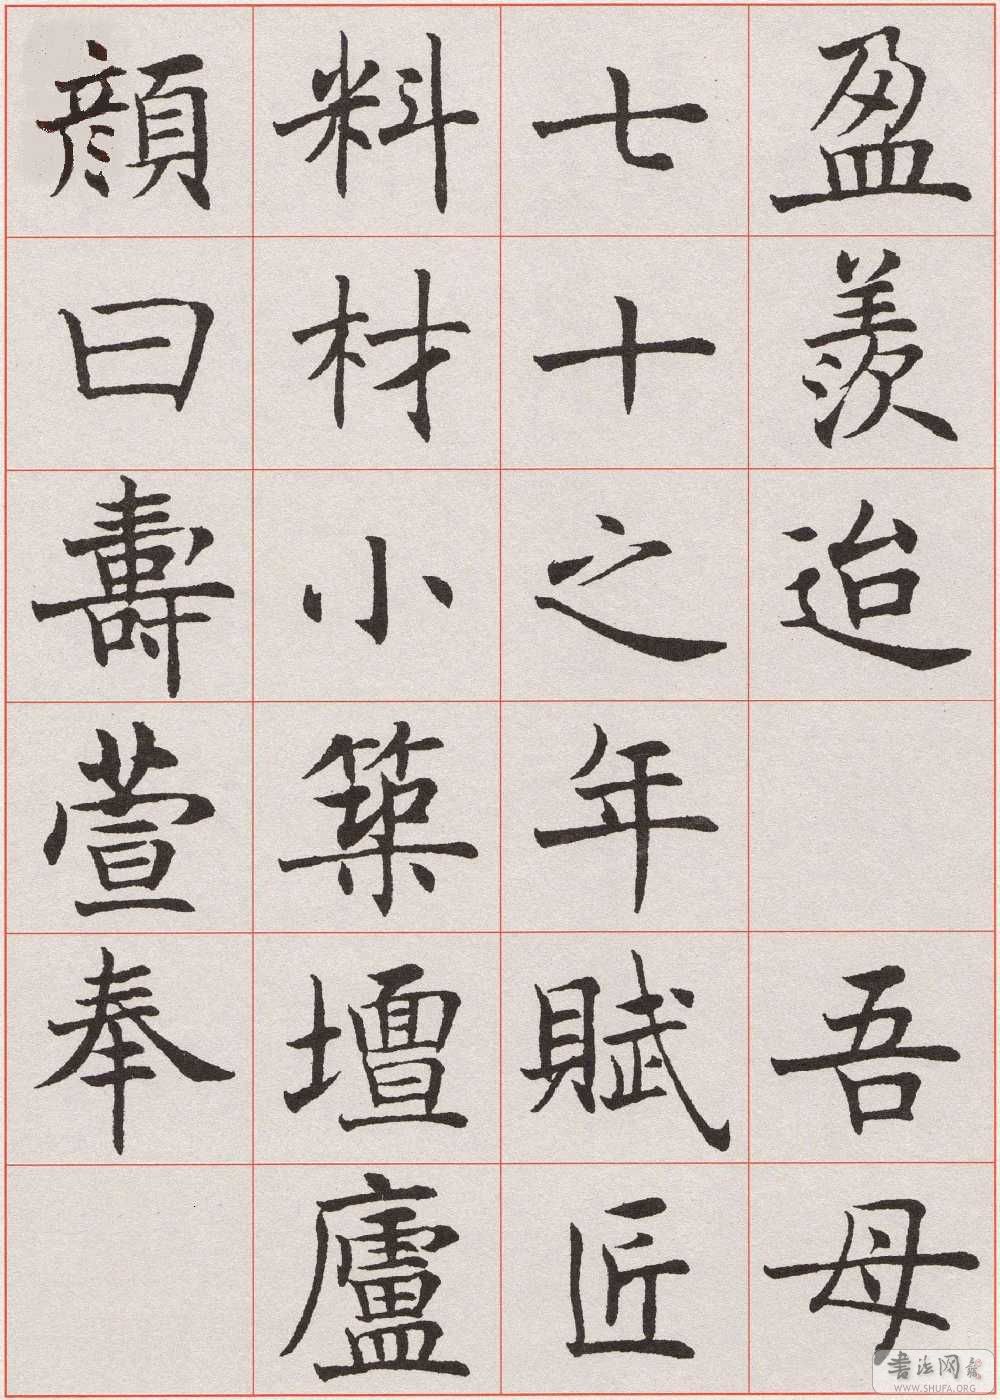 盈羨迨 吾母
七十之年賦匠
料材小築壇廬
顔曰壽萱奉
書法网
WWW.SHUFA.ORG